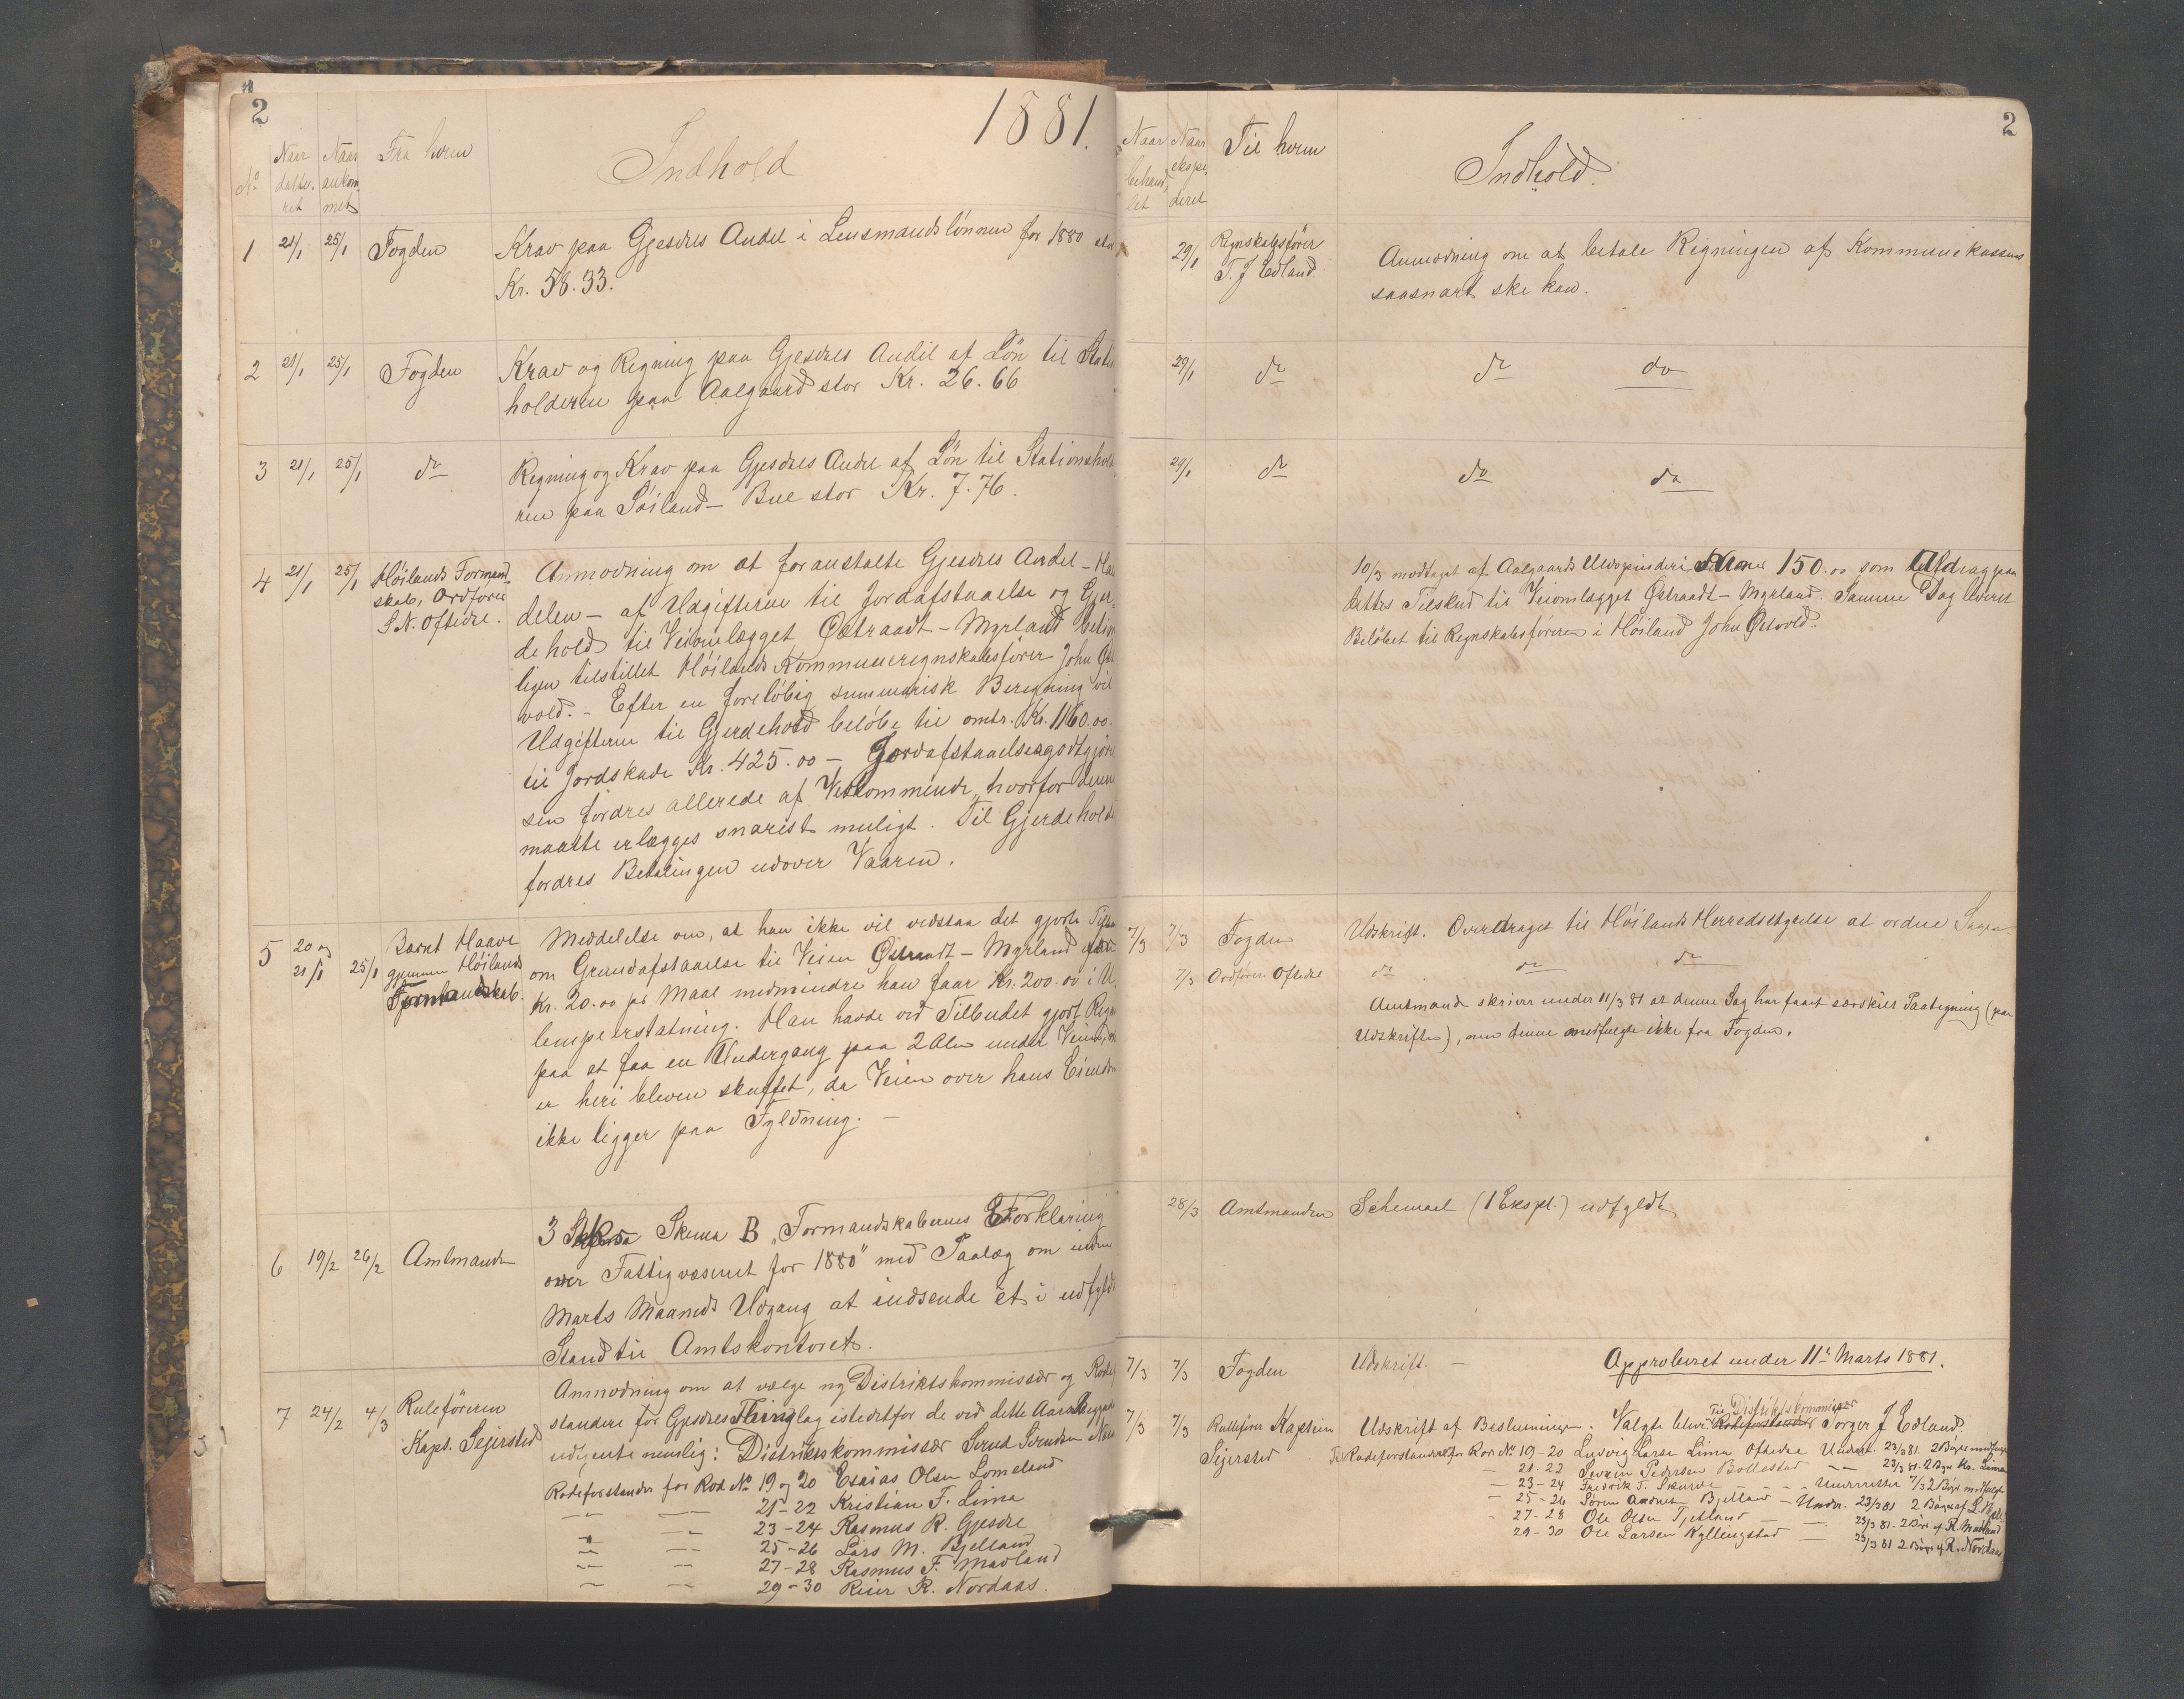 2
1881.
No
Naar datteret
Naar ankommet
Fra hvem
Indhold
1 21/1 25/1 Fogden Krav paa Gjesdels Andel i Lensmandslønnen for 1880 stor
Kr. 58.33.
2 21/1 25/1 Fogden Krav og Regning paa Gjesdels Andel af Løn til Stations
holderne paa Aalgaard stor Kr. 26.66
3 21/1 25/1 do Regning og Krav paa Gjesdels Andel af Løn til Stationshold
ren paa Søiland - Bue stor Kr. 7.76.
4 21/1 25/1 Høilands Formand-
skab, Ordfører
S.N. Oftedre.
Anmodning om at foranstalte Gjesdels Andel - Hal
delen - af Udgifterne til Jordafstaaelse og Gjer-
dehold til Veiomlægget Østraadt - Myrland betime
ligen tilstillet Høilands Kommuneregnskabsfører John Øst
vold. - Efter en foreløbig summarisk Beregning vil
Udgifterne til Gjerdehold beløbe til omtr. Kr. 1160.00.
til Jordskade Kr. 425.00 - Jordafstaaelsesgodtgjørel
sen fordres allerede af Vedkommende, hvorfor denne
maatte erlægges snarest muligt. Til Gjerdeholdet
fordres Betalingen udover Vaaren.
5 20 og
21/1 25/1 Baard Haave
gjennem Høilands
Formandskab.
Meddelelse om, at han ikke vil vedstaa det gjorte Tilbud
om Grundafstaaelse til Veien Østraadt - Myrland
Kr. 20.00 pr Maal medmindre han faar Kr. 200.00 i U
lempeerstatning. Han havde ved Tilbudet gjort Regning
paa at faa en Undergang paa 2 Alen under Veien,
er heri bleven skuffet, da Veien over hans Eiendom
ikke ligger paa Fyldning. -
6 19/2 26/2 Amtmanden
3 Skema B "Formandskabernes Forklaring
over Fattigvæsenet for 1880" med Paalæg om inden
Marts Maaneds Udgang at indsende et i udfyldt
Stand til Amtskontoret.
7 24/2 4/3 Rulleføreren
Kapt. Sejersted
Anmodning om at vælge ny Distriktskommissær og Rodefor
standere for Gjesdels Thinglag istedetfor de ved dette Aars Begyndelse
udgaaende nemlig: Distriktskommissær Svend Svendsen
Rodeforstander for Rod No 19 og 20 Esaias Olsen Lomeland
21-22 Kristian F. Lima
23-24 Rasmus R. Gjesdre
25-26 Lars M. Bjelland
27-28 Rasmus F. Madland
29-30 Reier R. Nordaas.
2
Naar behandlet
Naar ekspederet
Til hvem
Indhold.
29/1 Regnskabsfører
T. J. Edland
Anmodning om at betale Regningen af Kommunekassen
saasnart ske kan.
29/1 do do do
29/1 do do do
10/3 modtaget af Aalgaards Uldspinderi Kroner 150.00 som Afdrag paa
dettes Tilskud til Veiomlægget Østraadt - Myrland. Samme Dag leveret
Beløbet til Regnskabsføreren i Høiland John Østvold.
7/3 7/3 Fogden Udskrift. Overdraget til Høilands Herredsstyrelse at ordne Sagen
7/3 Ordfører Oftedre do do do
Amtmand skriver under 11/3 81 at denne Sag har faaet særskilt Paategning (paa
Udskriften), men denne medfulgte ikke fra Fogden.
28/3 Amtmanden Schemaet (1 Expl.) udfyldt
7/3 7/3 Fogden Udskrift. - Approberet under 11te Marts 1881.
7/3 7/3 Rullefører Kaptein
Sejersted
Til Distriktskommissær
Udskrift af Beslutningen. Valgte blev: Rodeforstander Torger J Edland.
Til Rodeforstander for Rod No 19-20 Ludvig Larsen Lima Oftedre Underr. 23/3 81. 2 Bøger medfulgte
21-22 Svein Pedersen Bollestad - - 23/3 81. 2 Bøger Kr. Lima
23-24 Fredrik T. Skurve - - - Underrettet 7/3 2 Bøger medfulgt
25-26 Søren Andreas Bjelland - Underr. 23/3 81 2 Bøger af L. Bjell.
27-28 Ole Olsen Tjetland - - 23/3 81. 2 Bøger af R. Madland
29-30 Ole Larsen Kyllingstad - 23/3 81 2 Bøger af R. Nordaas